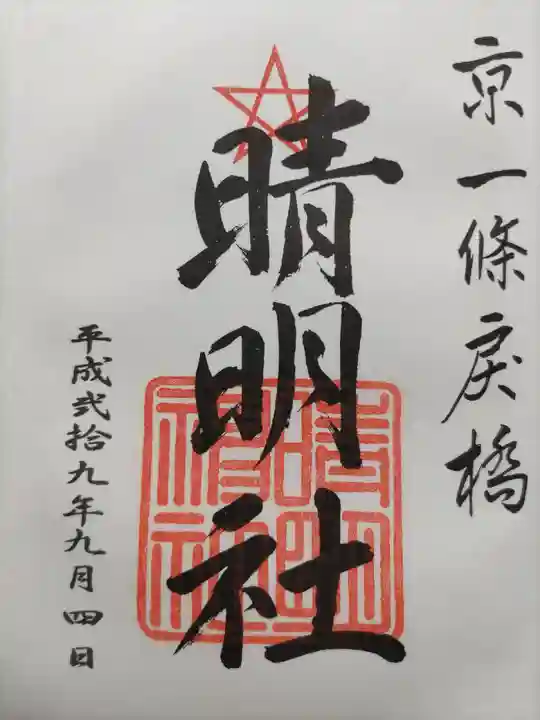 京一條戻橋
晴明社
晴明神社
平成弐拾九年九月四日